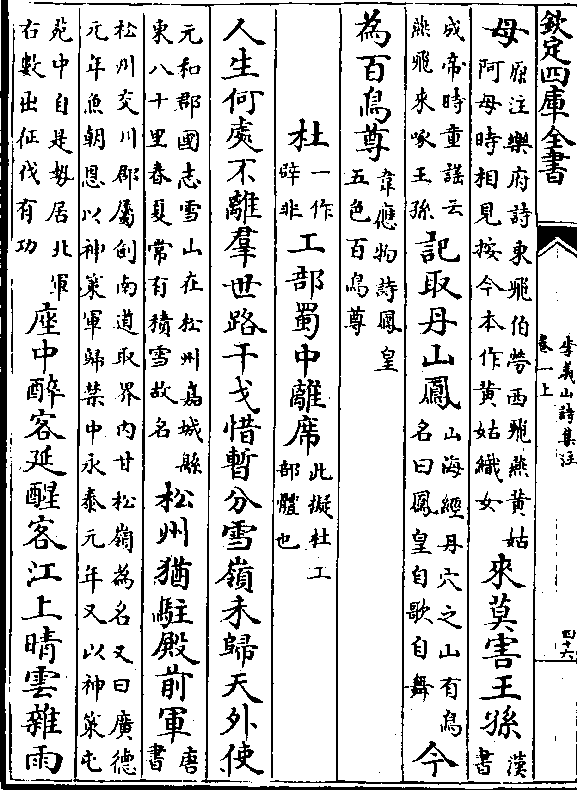 欽定四庫全書
李義山詩集注
卷一上
四十六
母原注樂府詩東飛伯勞西飛燕黄姑阿母時相見按今本作黄姑織女來莫害王孫漢書
成帝時童謡云燕飛來啄王孫記取丹山鳳山海經丹穴之山有鳥名曰鳳皇自歌自舞今
為百鳥尊韋應物詩鳳皇五色百鳥尊
杜一作辟非工部蜀中離席此擬杜工部體也
人生何處不離羣世路干戈惜暫分雪嶺未歸天外使
元和郡國志雪山在松州嘉城縣東八十里春夏常有積雪故名松州猶駐殿前軍唐書
松州交川郡屬劍南道取界内甘松嶺為名又曰廣德元年魚朝恩以神策軍歸禁中永泰元年又以神策屯
苑中自是勢居北軍右數出征伐有功座中醉客延醒客江上晴雲雜雨